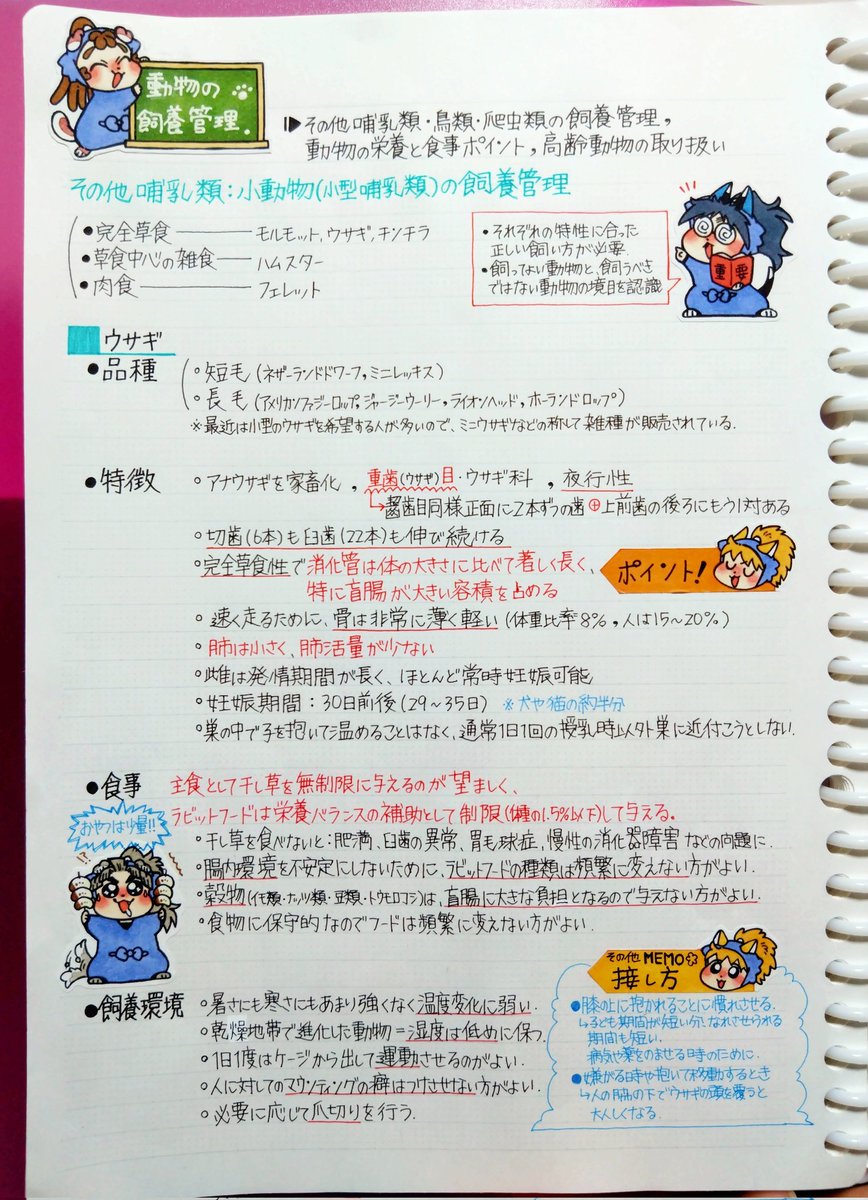 動物の
飼養管理.
その他哺乳類・鳥類・爬虫類の飼養管理,
動物の栄養と食事ポイント, 高齢動物の取り扱い
その他哺乳類:小動物(小型哺乳類)の飼養管理
●完全草食 モルモット, ウサギ, チンチラ
●草食中心の雑食 ハムスター
●肉食 フェレット
・それぞれの特性に合った
正しい飼い方が必要.
・飼ってよい動物と、飼うべき
ではない動物の境目を認識
重要
ウサギ
●品種
○短毛(ネザーランドドワーフ, ミニレッキス)
○長毛(アメリカンファジーロップ, ジャージーウーリー, ライオンヘッド, ホーランドロップ)
※最近は小型のウサギを希望する人が多いので、ミニウサギなどの称して雑種が販売されている.
●特徴
○アナウサギを家畜化, 重歯(ウサギ)目・ウサギ科, 夜行性
→齧歯目同様正面に2本ずつの歯⊕上前歯の後ろにもう1対ある
○切歯(6本)も臼歯(22本)も伸び続ける
○完全草食性で消化管は体の大きさに比べて著しく長く、
特に盲腸が大きい容積を占める
ポイント!
○速く走るために、骨は非常に薄く軽い(体重比率8%, 人は15~20%)
○肺は小さく、肺活量が少ない
○雌は発情期間が長く、ほとんど常時妊娠可能
○妊娠期間:30日前後(29~35日) ※犬や猫の約半分
○巣の中で子を抱いて温めることはなく、通常1日1回の授乳時以外巣に近付こうとしない.
●食事
主食として干し草を無制限に与えるのが望ましく、
ラビットフードは栄養バランスの補助として制限(体重の1.5%以下)して与える。
おやつは少量!!
○干し草を食べないと:肥満、臼歯の異常、胃毛球症, 慢性の消化器障害などの問題に.
○腸内環境を不安定にしないために、ラビットフードの種類は頻繁に変えない方がよい.
○穀物(イモ類・ナッツ類・豆類・トウモロコシ)は、盲腸に大きな負担となるので与えない方がよい.
○食物に保守的なのでフードは頻繁に変えない方がよい.
●飼養環境
○暑さにも寒さにもあまり強くなく温度変化に弱い.
○乾燥地帯で進化した動物=湿度は低めに保つ.
○1日1度はケージから出して運動させるのがよい.
○人に対してのマウンティングの癖はつけさせない方がよい.
○必要に応じて爪切りを行う.
その他MEMO
接し方
●膝の上に抱かれることに慣れさせる.
↳子ども期間が短い分、なれさせられる
期間も短い.
病気や薬をのませる日時のために.
●嫌がる時や抱いて移動するとき
↳人の脇の下でウサギの頭を覆うと
大人しくなる.